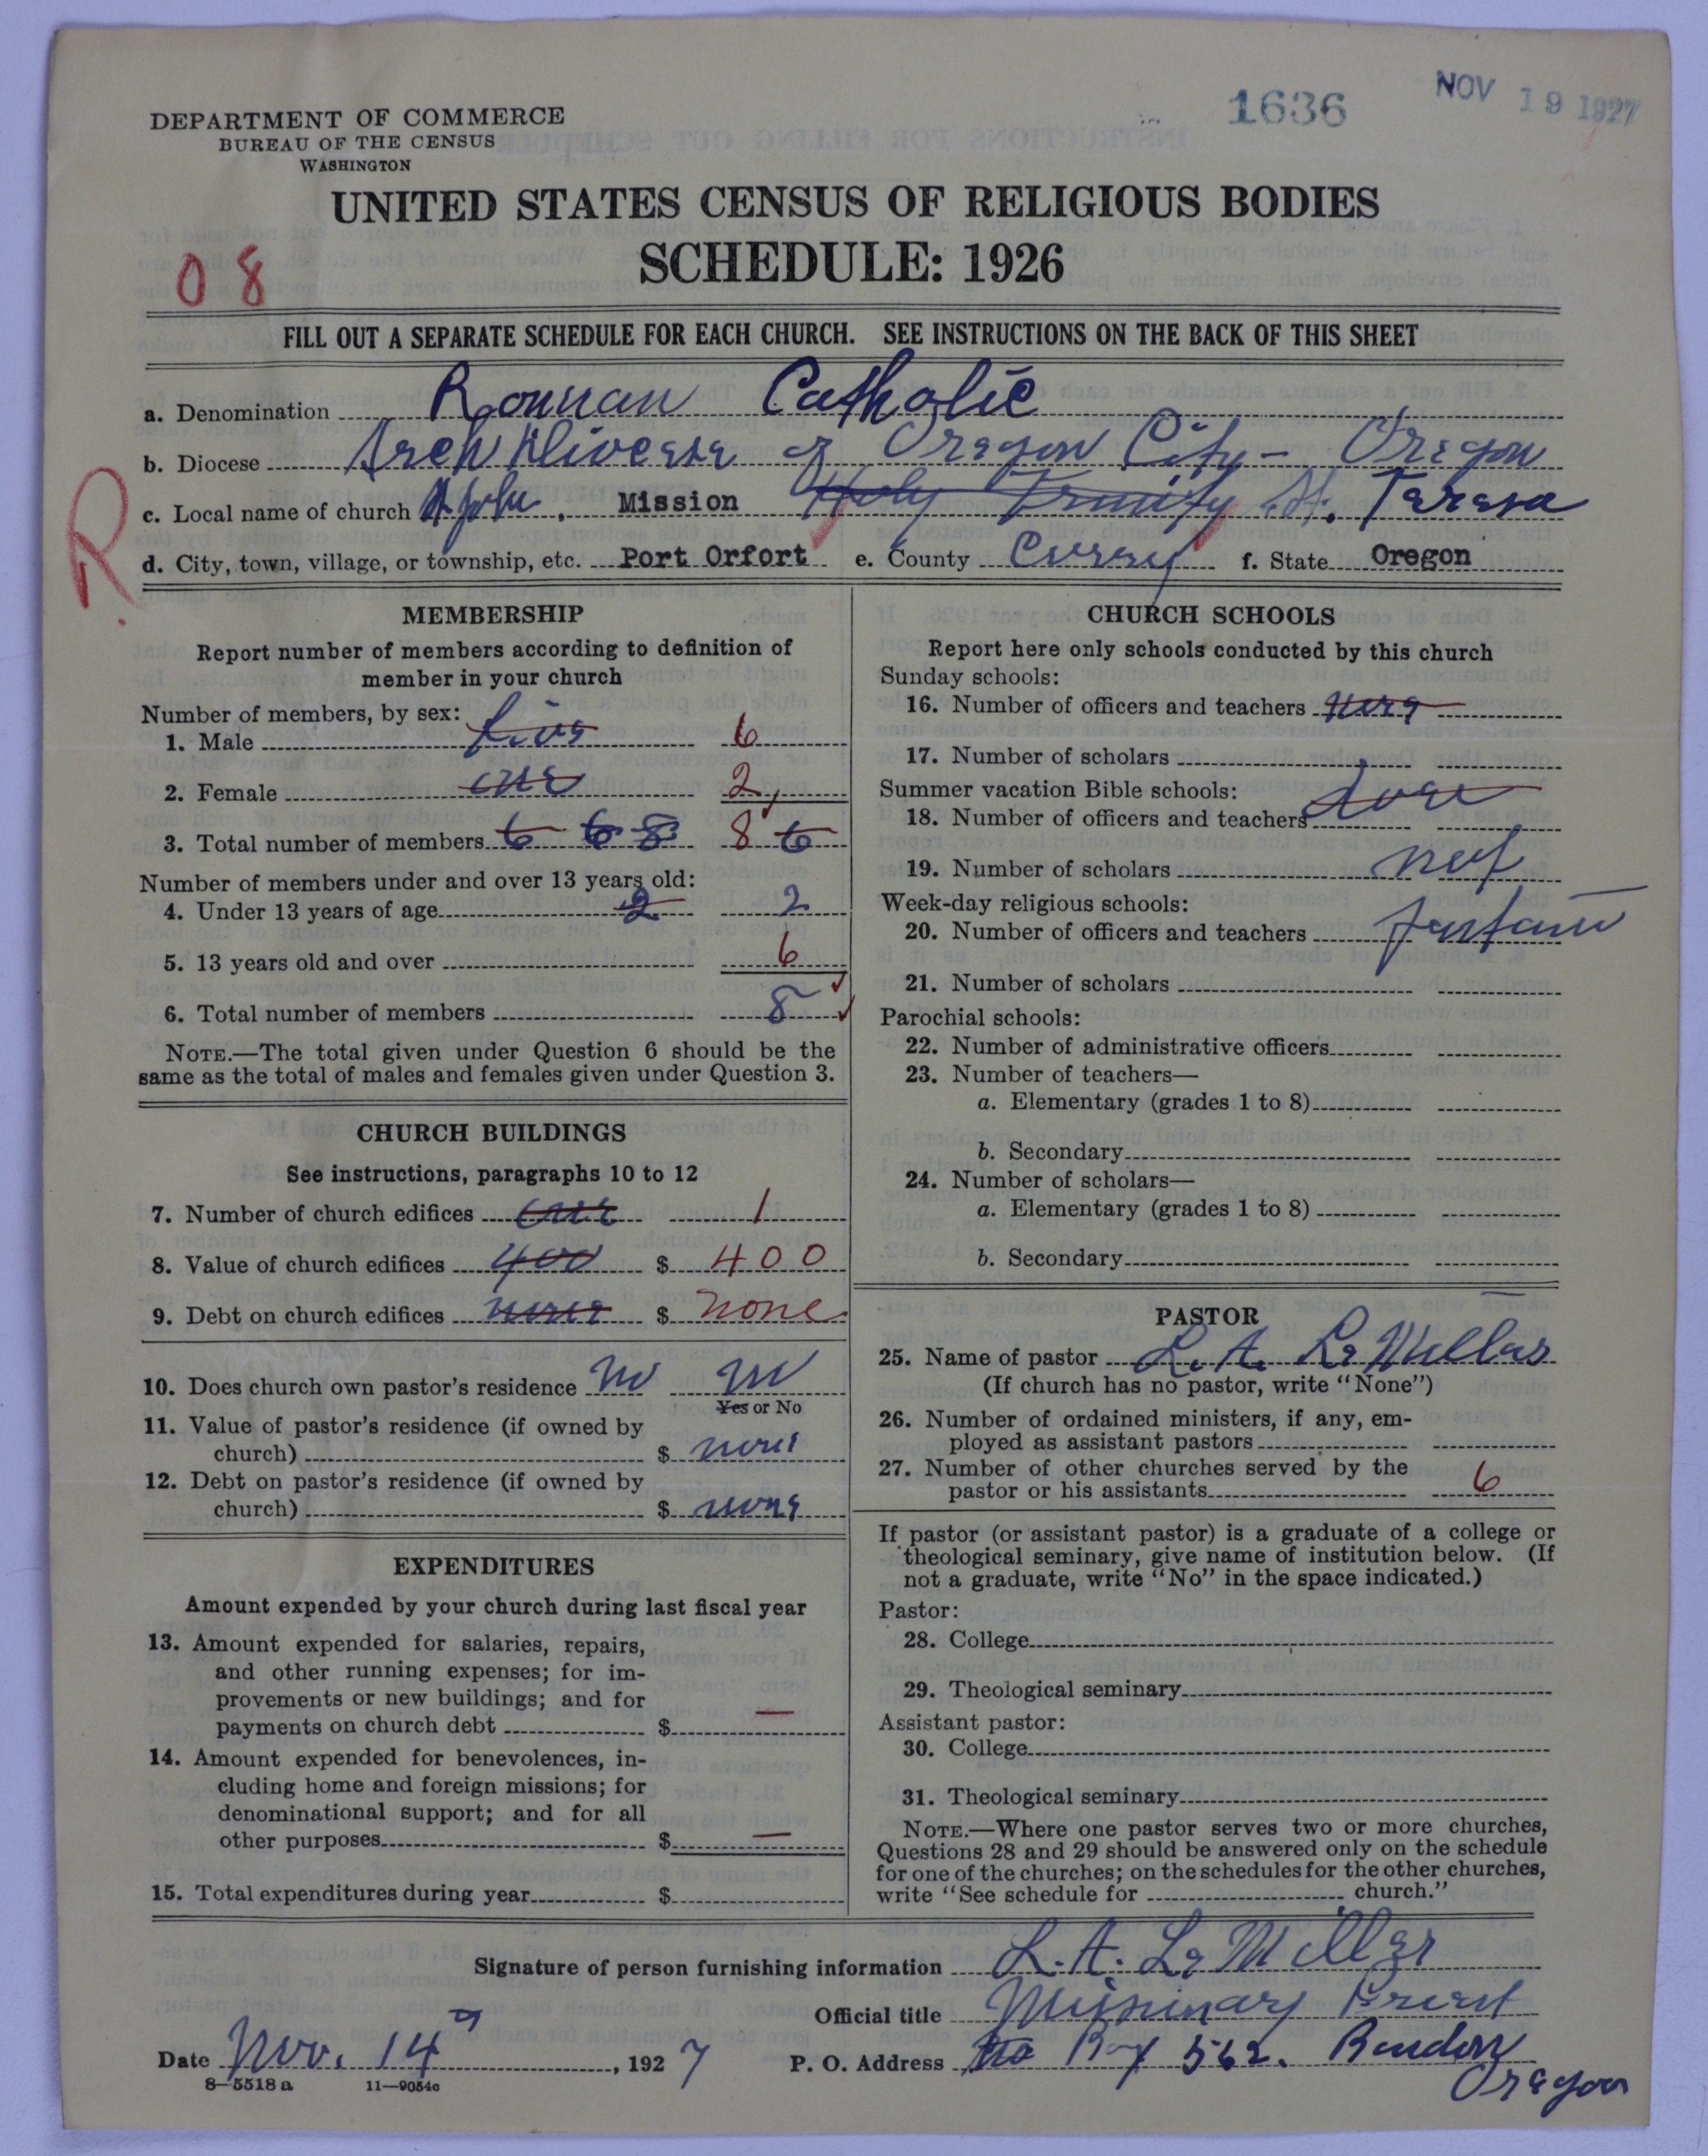 1636 NOV 19 1927
DEPARTMENT OF COMMERCE
BUREAU OF THE CENSUS
WASHINGTON
UNITED STATES CENSUS OF RELIGIOUS BODIES
SCHEDULE: 1926
08
FILL OUT A SEPARATE SCHEDULE FOR EACH CHURCH. SEE INSTRUCTIONS ON THE BACK OF THIS SHEET
R.
a. Denomination Roman Catholic
b. Diocese Arch Diocese of Oregon City - Oregon
c. Local name of church St John. Mission Holy Trinity St. Teresa
d. City, town, village, or township, etc. Port Orfort e. County Curry f. State Oregon
MEMBERSHIP
Report number of members according to definition of
member in your church
Number of members, by sex:
1. Male five 6
2. Female one 2
3. Total number of members 6 6 8 8 6
Number of members under and over 13 years old:
4. Under 13 years of age 2 2
5. 13 years old and over 6
6. Total number of members 8
NOTE.—The total given under Question 6 should be the
same as the total of males and females given under Question 3.
CHURCH BUILDINGS
See instructions, paragraphs 10 to 12
7. Number of church edifices one 1
8. Value of church edifices 400 $ 400
9. Debt on church edifices none $ none
10. Does church own pastor's residence No No
Yes or No
11. Value of pastor's residence (if owned by
church) $ none
12. Debt on pastor's residence (if owned by
church) $ none
EXPENDITURES
Amount expended by your church during last fiscal year
13. Amount expended for salaries, repairs,
and other running expenses; for im-
provements or new buildings; and for
payments on church debt $ —
14. Amount expended for benevolences, in-
cluding home and foreign missions; for
denominational support; and for all
other purposes $ —
15. Total expenditures during year $
CHURCH SCHOOLS
Report here only schools conducted by this church
Sunday schools:
16. Number of officers and teachers
17. Number of scholars
Summer vacation Bible schools:
18. Number of officers and teachers
19. Number of scholars
Week-day religious schools:
20. Number of officers and teachers
21. Number of scholars
Parochial schools:
22. Number of administrative officers
23. Number of teachers—
a. Elementary (grades 1 to 8)
b. Secondary
24. Number of scholars—
a. Elementary (grades 1 to 8)
b. Secondary
PASTOR
25. Name of pastor L. A. Le Millar
(If church has no pastor, write "None")
26. Number of ordained ministers, if any, em-
ployed as assistant pastors
27. Number of other churches served by the
pastor or his assistants 6
If pastor (or assistant pastor) is a graduate of a college or
theological seminary, give name of institution below. (If
not a graduate, write "No" in the space indicated.)
Pastor:
28. College
29. Theological seminary
Assistant pastor:
30. College
31. Theological seminary
NOTE.—Where one pastor serves two or more churches,
Questions 28 and 29 should be answered only on the schedule
for one of the churches; on the schedules for the other churches,
write "See schedule for church."
Signature of person furnishing information L. A. Le Miller
Official title Missionary Priest
Date Nov. 14, 1927 P. O. Address Box 562. Bandon
Oregon
8—5518 a 11—9054c